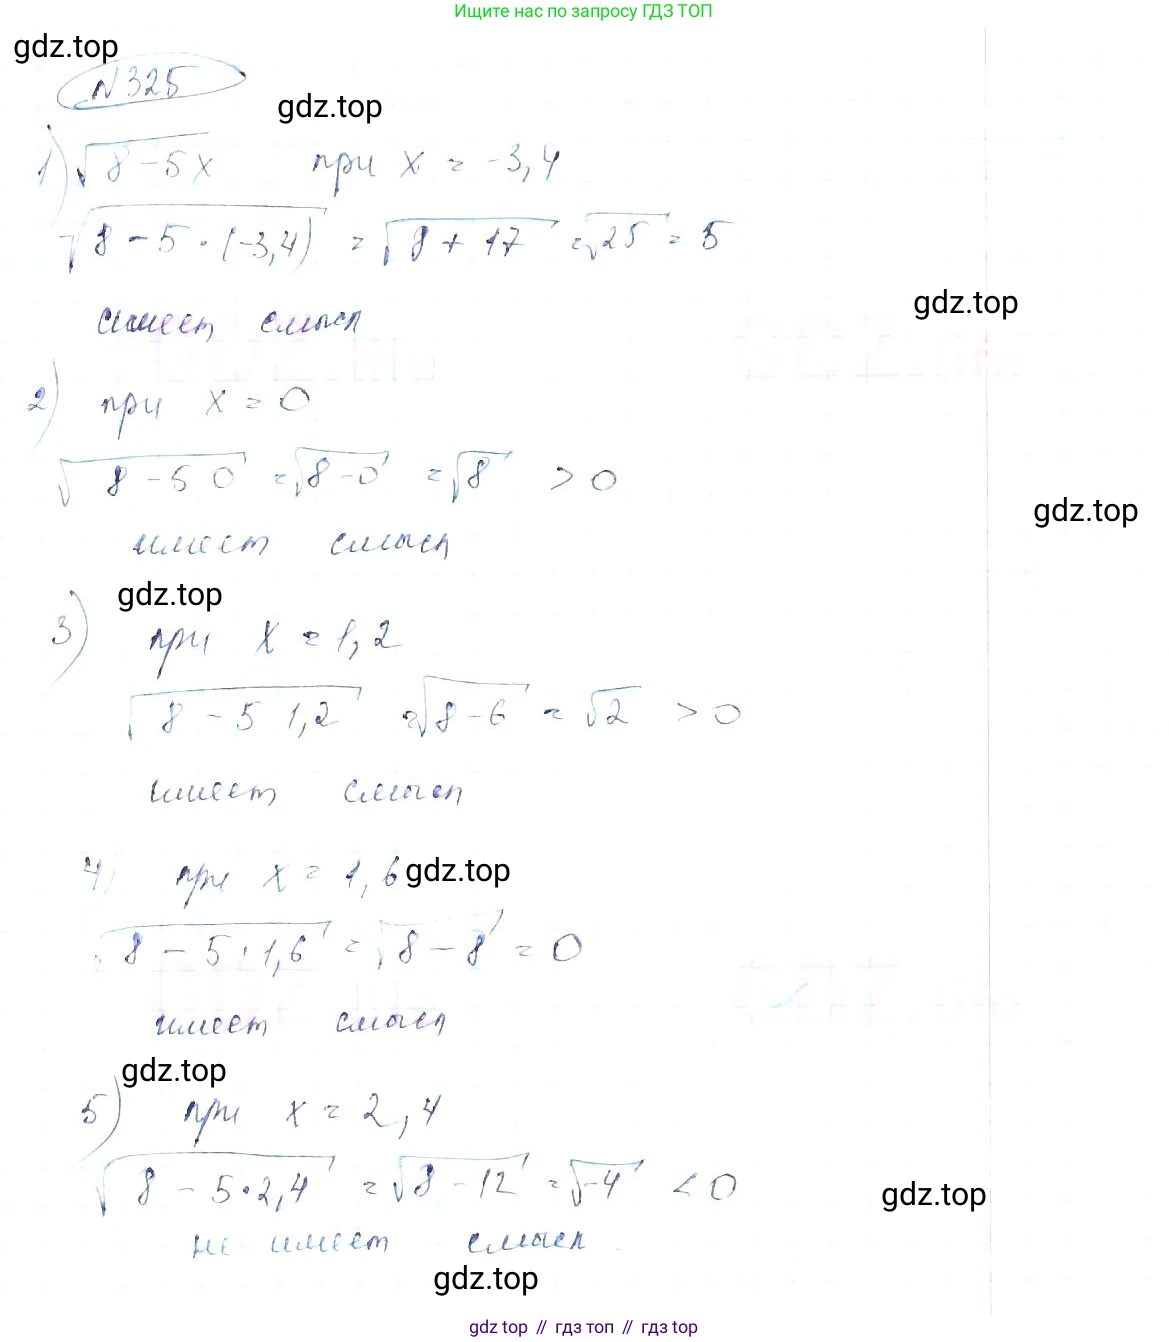 Ищите нас по запросу ГДЗ ТОП
gdz.top
N 325
gdz.top
1) √(8 - 5x) при x = -3,4
√(8 - 5 · (-3,4)) = √(8 + 17) = √25 = 5
имеет смысл
gdz.top
2) при x = 0
√(8 - 5 0) = √(8 - 0) = √8 > 0
gdz.top
имеет смысл
gdz.top
3) при x = 1,2
√(8 - 5 1,2) = √(8 - 6) = √2 > 0
имеет смысл
4) при x = 1,6 gdz.top
√(8 - 5 · 1,6) = √(8 - 8) = 0
имеет смысл
gdz.top
5) при x = 2,4
√(8 - 5 · 2,4) = √(8 - 12) = √-4 < 0
gdz.top
не имеет смысл
gdz.top
gdz top // гдз топ // гдз top